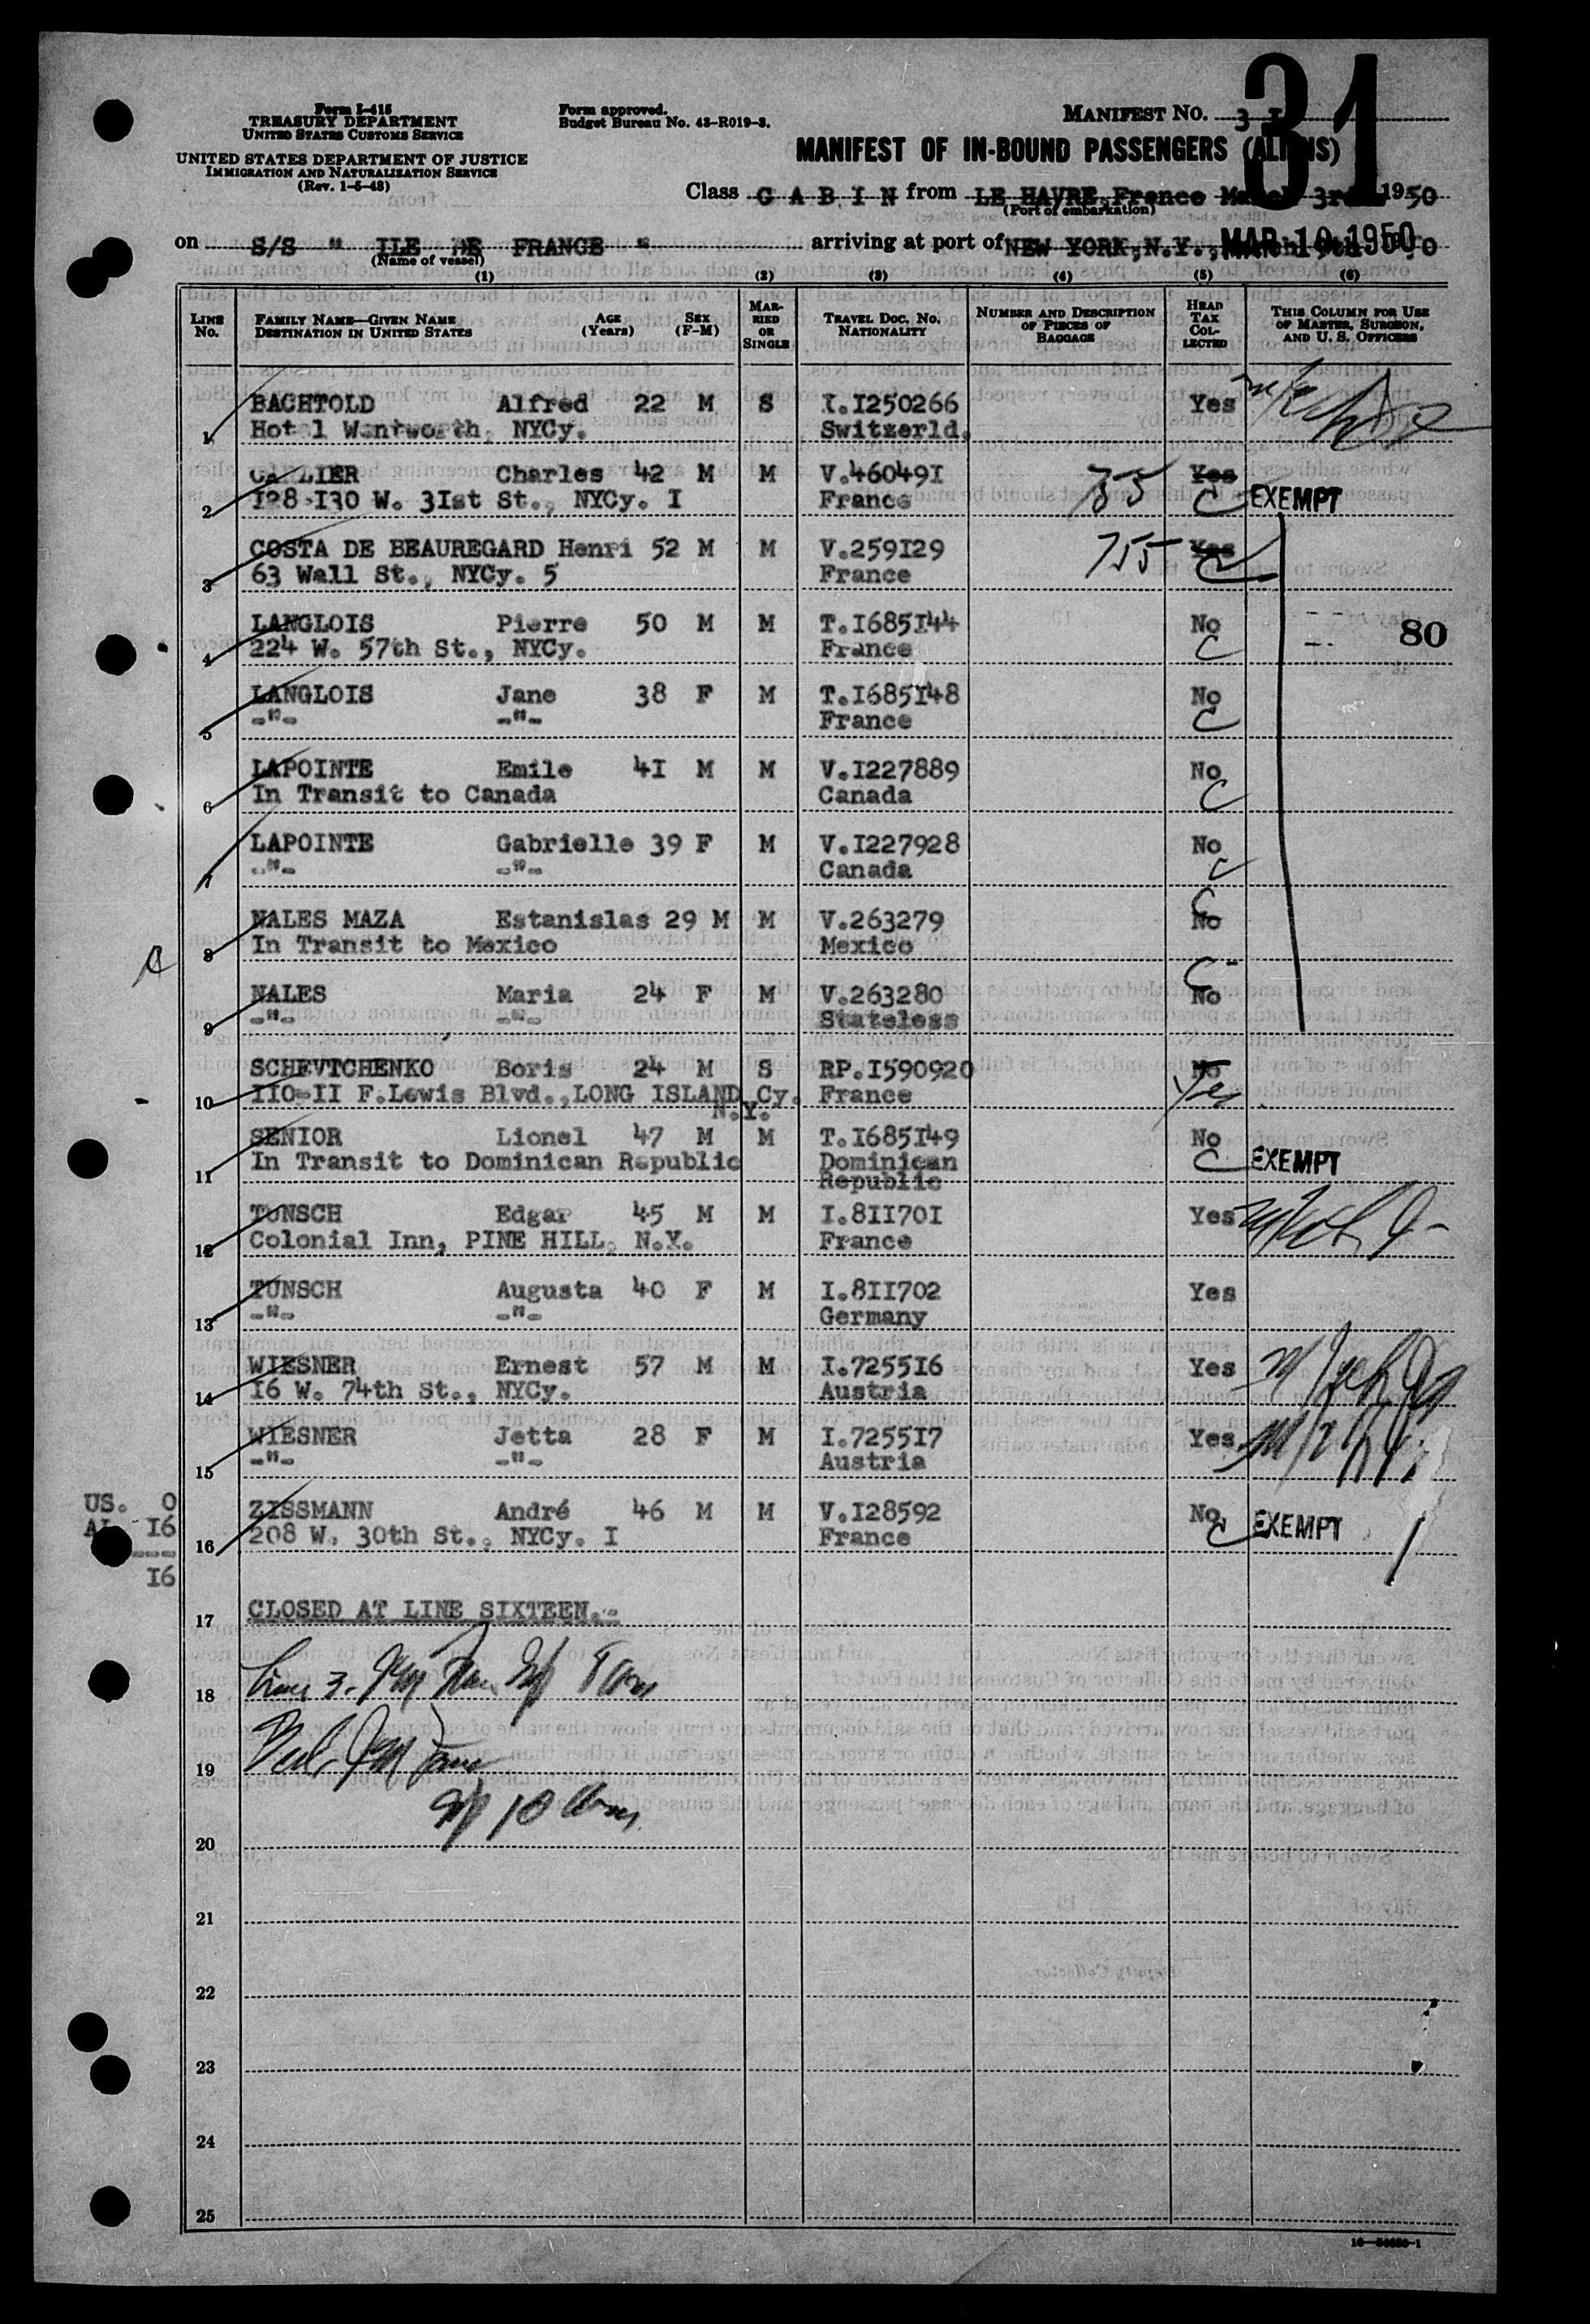 Form I-415
TREASURY DEPARTMENT
UNITED STATES CUSTOMS SERVICE
UNITED STATES DEPARTMENT OF JUSTICE
IMMIGRATION AND NATURALIZATION SERVICE
(Rev. 1-5-48)
Form approved.
Budget Bureau No. 43-R019-3.
MANIFEST No. 3 I
31
MANIFEST OF IN-BOUND PASSENGERS (ALIENS)
Class C A B I N from LE HAVRE, France March 3rd 1950
(Port of embarkation)
on S/S " ILE DE FRANCE " arriving at port of NEW YORK, N.Y.,
MAR 10 1950
(Name of vessel)
(1) (2) (3) (4) (5) (6)
LINE No. FAMILY NAME—GIVEN NAME DESTINATION IN UNITED STATES AGE (Years) SEX (F-M) MARRIED OR SINGLE TRAVEL DOC. NO. NATIONALITY NUMBER AND DESCRIPTION OF PIECES OF BAGGAGE HEAD TAX COLLECTED THIS COLUMN FOR USE OF MASTER, SURGEON, AND U. S. OFFICERS
BACHTOLD Alfred 22 M S I.I250266 Yes
1 Hotel Wentworth, NYCy. Switzerld.
CARLIER Charles 42 M M V.46049I Yes
2 I28-I30 W. 3Ist St., NYCy. I France C EXEMPT
COSTA DE BEAUREGARD Henri 52 M M V.259I29 755 Yes
3 63 Wall St., NYCy. 5 France C
LANGLOIS Pierre 50 M M T.I685I44 No 80
4 224 W. 57th St., NYCy. France C
LANGLOIS Jane 38 F M T.I685I48 No
5 -"- -"- France C
LAPOINTE Emile 4I M M V.I227889 No
6 In Transit to Canada Canada C
LAPOINTE Gabrielle 39 F M V.I227928 No
7 -"- -"- Canada C
NALES MAZA Estanislas 29 M M V.263279 C No
8 In Transit to Mexico Mexico
NALES Maria 24 F M V.263280 C No
9 -"- -"- Stateless
SCHEVTCHENKO Boris 24 M S RP.I590920 No
10 IIO-II F.Lewis Blvd.,LONG ISLAND Cy. N.Y. France Yes
SENIOR Lionel 47 M M T.I685I49 No
11 In Transit to Dominican Republic Dominican Republic C EXEMPT
TUNSCH Edgar 45 M M I.8II70I Yes
12 Colonial Inn, PINE HILL, N.Y. France
TUNSCH Augusta 40 F M I.8II702 Yes
13 -"- -"- Germany
WIESNER Ernest 57 M M I.7255I6 Yes
14 I6 W. 74th St., NYCy. Austria
WIESNER Jetta 28 F M I.7255I7 Yes
15 -"- -"- Austria
ZISSMANN André 46 M M V.I28592 No
16 208 W. 30th St., NYCy. I France C EXEMPT
US. 0
AL I6
---
I6
17 CLOSED AT LINE SIXTEEN.-
18
19
20
21
22
23
24
25